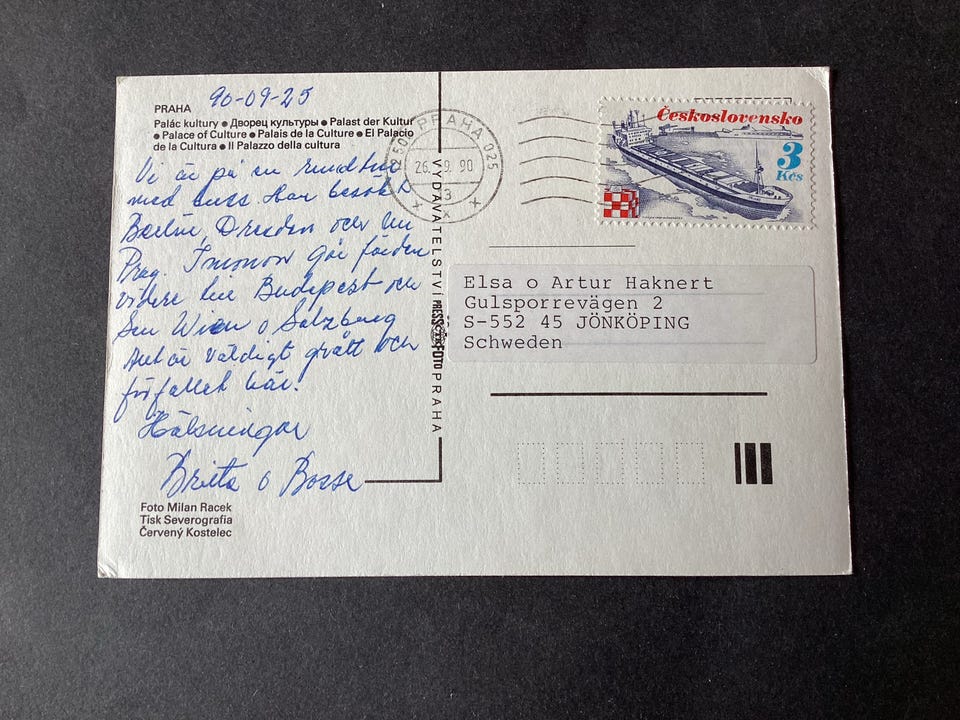 PRAHA 90-09-25
Palác kultury ● Дворец культуры ● Palast der Kultur
● Palace of Culture ● Palais de la Culture ● El Palacio
de la Cultura ● Il Palazzo della cultura
Vi är på en rundtur
med buss. Har besökt
Berlin, Dresden och nu
Prag. Imoron går färden
vidare till Budapest och
sen Wien o Salzburg
Allt är väldigt grått och
förfallet här.
Hälsningar
Britta o Bosse
Foto Milan Racek
Tisk Severografia
Červený Kostelec
VYDAVATELSTVÍ PRESSFOTO PRAHA
PRAHA 025
26.9.90
Československo
3
Kčs
Elsa o Artur Haknert
Gulsporrevägen 2
S-552 45 JÖNKÖPING
Schweden